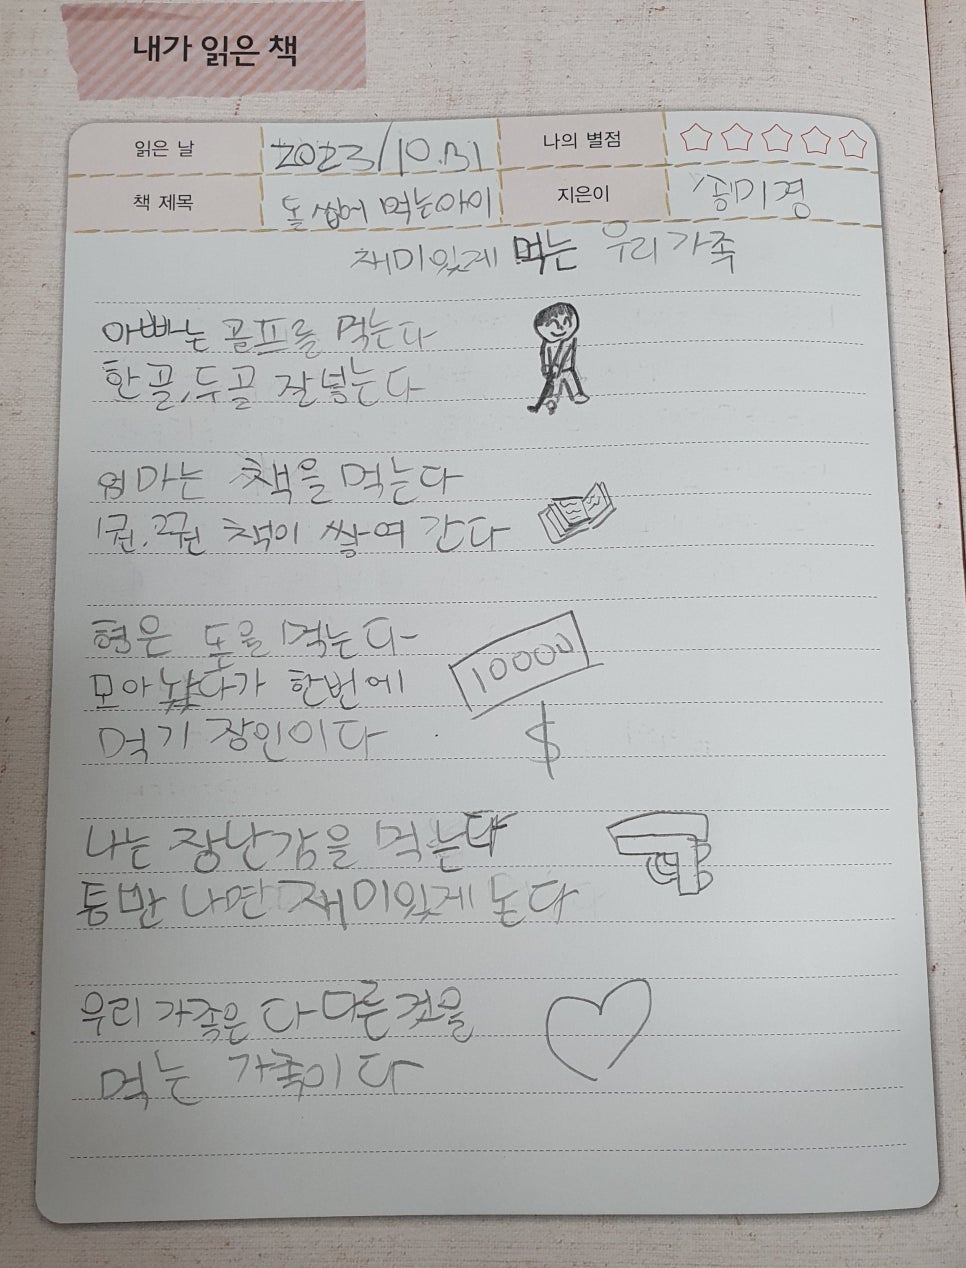 내가 읽은 책
읽은 날 2023/10.31 나의 별점
책 제목 돌 씹어 먹는아이 지은이 송미경
재미있게 먹는 우리 가족
아빠는 골프를 먹는다
한골,두골 잘넣는다
엄마는 책을 먹는다
1권.2권 책이 쌓여 간다
형은 돈을 먹는다
모아놨다가 한번에
먹기 장인이다
10000
$
나는 장난감을 먹는다
틈만 나면 재미있게 논다
우리 가족은 다 다른 것을
먹는 가족이다